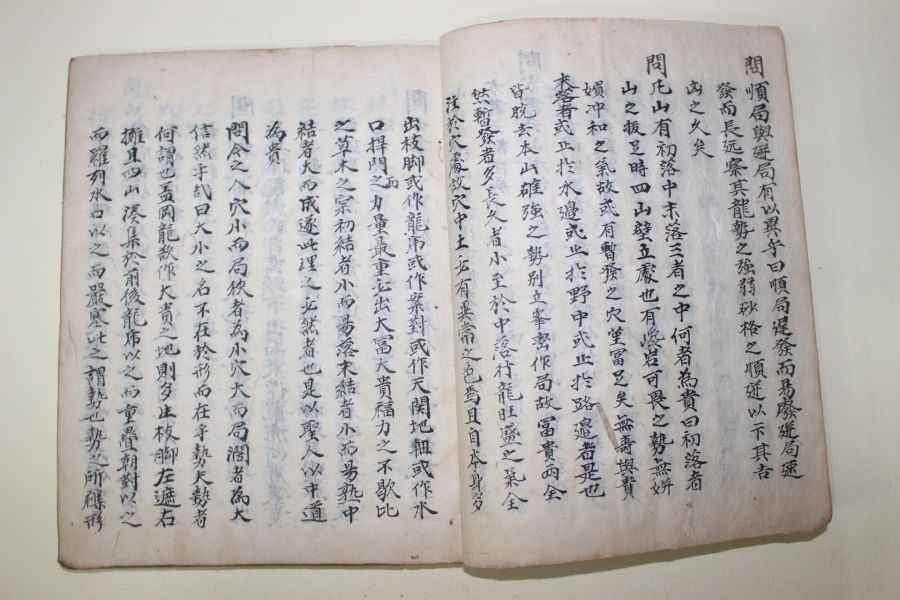 問順局與逆局有以異乎曰順局遲發而易廢逆局速
發而長远察其龍勢之強弱砂格之順逆以卞其吉
凶之久矣
問凡山有初落中末落三者之中何者為貴曰初落者
山之拔足時四山壁立處也有巉岩可畏之勢無姸
嬀冲和之氣故或有暫發之穴望冨足矣無壽與貴
末落者或止扵水邉或止扵野中或止扵路邉者是也
皆脫去本山雄強之勢别立峯巒作局故富貴兩全
然暫發者多長久者小至於中落行龍旺盛之氣全
注於穴處故穴中土必有異常之色焉且自本身多
出枝脚或作龍虎或作案對或作天関地軸或作水
口捍門之力量最重而必出大富大貴福力之不歇比
之草木之宲初結者小而昜落末結者小而昜熟中
結者大而成遂此理之必然者也是以聖人以中道
為貴
問今之人穴小而局狹者為小穴大而局濶者為大
信然乎哉曰大小之名不在於形而在乎勢夫勢者
何謂也盖岡龍欲作大貴之地則多出枝脚左遮右
擁且四山湊集於前後龍虎以之而重疊朝對以之
而羅列水口以之而嚴塞此之謂勢也勢之所穪形